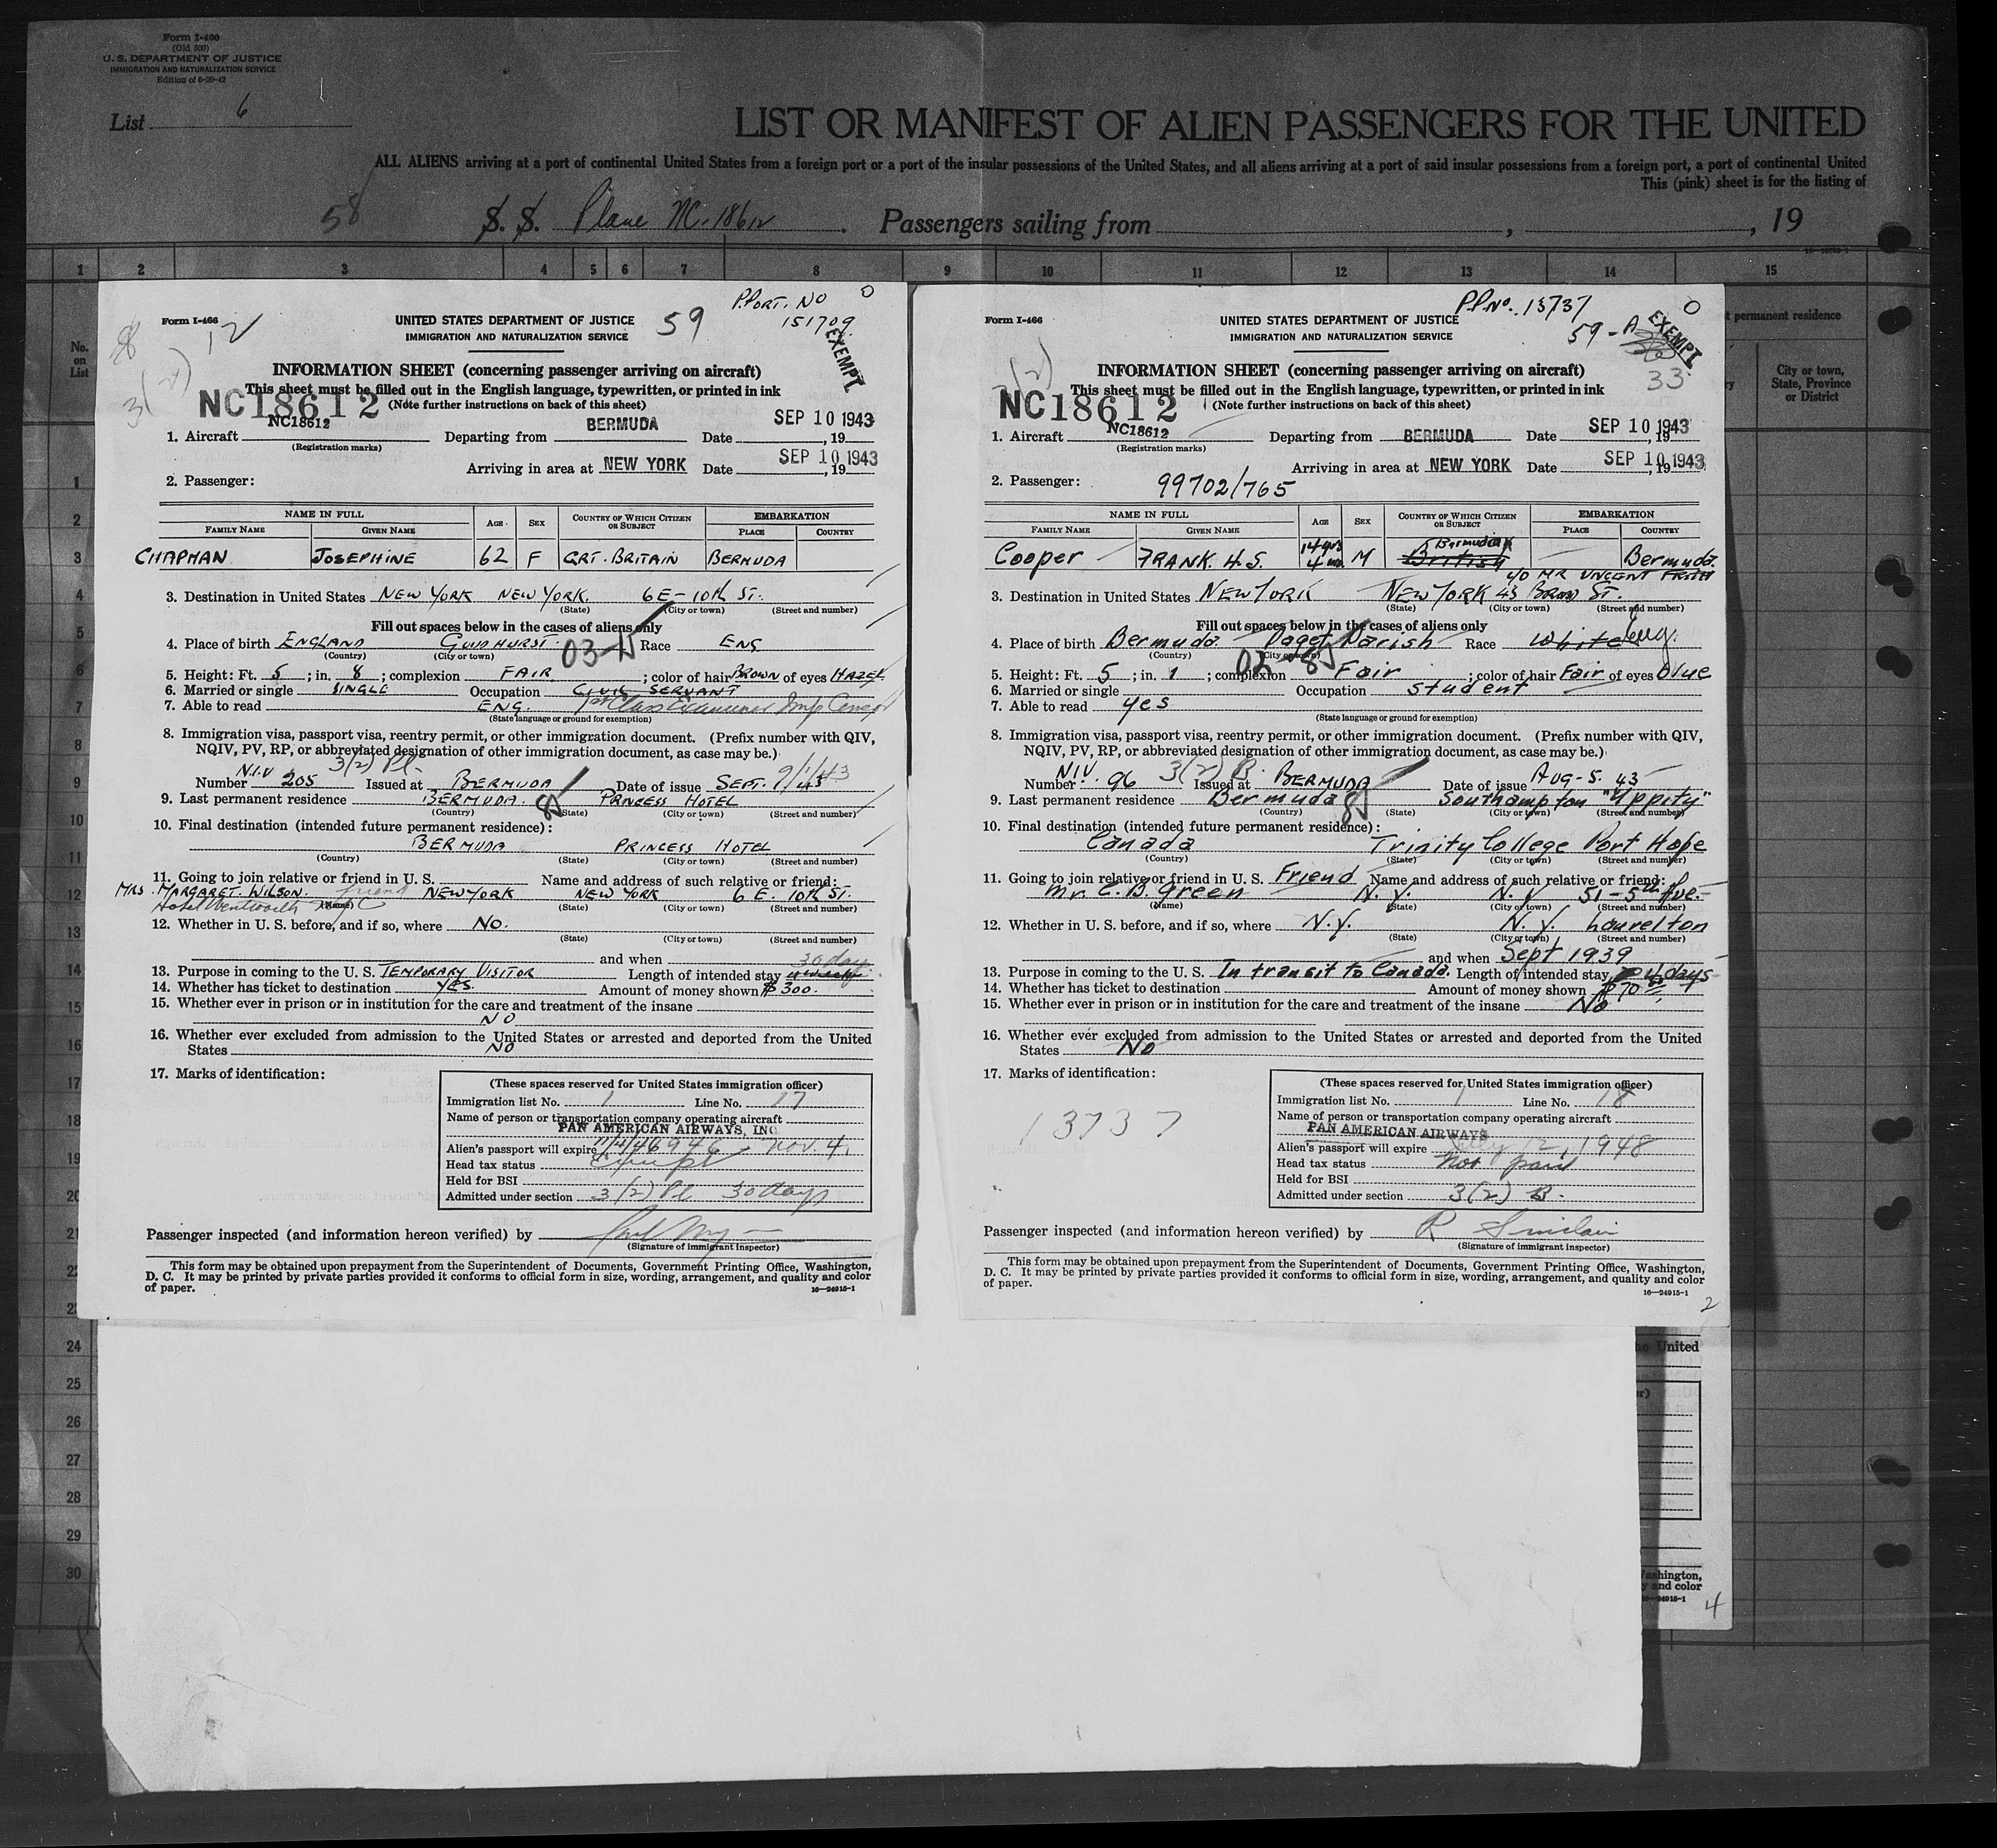 Form I-460
(Old 500)
U. S. DEPARTMENT OF JUSTICE
IMMIGRATION AND NATURALIZATION SERVICE
Edition of 6-20-42
List 6
LIST OR MANIFEST OF ALIEN PASSENGERS FOR THE UNITED
ALL ALIENS arriving at a port of continental United States from a foreign port or a port of the insular possessions of the United States, and all aliens arriving at a port of said insular possessions from a foreign port, a port of continental United
This (pink) sheet is for the listing of
58 S. S. Plane NC-18612. Passengers sailing from , , 19
1 2 3 4 5 6 7 8 9 10 11 12 13 14 15
No. on List
t permanent residence
City or town, State, Province or District
P.PORT. NO
151709
EXEMPT
12
59
3(2)
Form I-466
UNITED STATES DEPARTMENT OF JUSTICE
IMMIGRATION AND NATURALIZATION SERVICE
INFORMATION SHEET (concerning passenger arriving on aircraft)
This sheet must be filled out in the English language, typewritten, or printed in ink
NC18612 (Note further instructions on back of this sheet)
1. Aircraft NC18612 Departing from BERMUDA Date SEP 10 1943, 19
(Registration marks)
Arriving in area at NEW YORK Date SEP 10 1943, 19
2. Passenger:
NAME IN FULL AGE SEX COUNTRY OF WHICH CITIZEN OR SUBJECT EMBARKATION
FAMILY NAME GIVEN NAME PLACE COUNTRY
CHAPMAN JOSEPHINE 62 F GRT. BRITAIN BERMUDA
3. Destination in United States NEW YORK NEW YORK. 6E-10th ST.
(State) (City or town) (Street and number)
Fill out spaces below in the cases of aliens only
4. Place of birth ENGLAND Race ENG
(Country) (City or town)
5. Height: Ft. 5; in. 8; complexion FAIR; color of hair BROWN of eyes HAZEL
6. Married or single SINGLE Occupation CIVIL SERVANT
7. Able to read ENG. 1st Class Examiner Imp Censor
(State language or ground for exemption)
8. Immigration visa, passport visa, reentry permit, or other immigration document. (Prefix number with QIV,
NQIV, PV, RP, or abbreviated designation of other immigration document, as case may be.)
3(2) Pl.
Number N.I.V 205 Issued at BERMUDA Date of issue SEPT. 9/1/43
9. Last permanent residence BERMUDA. PRINCESS HOTEL
(Country) (State) (City or town) (Street and number)
10. Final destination (intended future permanent residence):
BERMUDA PRINCESS HOTEL
(Country) (State) (City or town) (Street and number)
11. Going to join relative or friend in U. S. Name and address of such relative or friend:
MRS. MARGARET. WILSON. friend NEW YORK NEW YORK 6 E. 10th ST.
Hotel Wentworth NYC
(Name) (State) (City or town) (Street and number)
12. Whether in U. S. before, and if so, where NO.
(State) (City or town) (Street and number)
and when
30 days
13. Purpose in coming to the U. S. TEMPORARY VISITOR Length of intended stay
14. Whether has ticket to destination YES. Amount of money shown $300.
15. Whether ever in prison or in institution for the care and treatment of the insane
NO
16. Whether ever excluded from admission to the United States or arrested and deported from the United
States NO
17. Marks of identification:
(These spaces reserved for United States immigration officer)
Immigration list No. 1 Line No. 17
Name of person or transportation company operating aircraft
PAN AMERICAN AIRWAYS, INC.
Alien's passport will expire 11/4/46 Nov. 4,
Head tax status Exempt
Held for BSI
Admitted under section 3(2) Pl 30 days
Passenger inspected (and information hereon verified) by
(Signature of immigrant inspector)
This form may be obtained upon prepayment from the Superintendent of Documents, Government Printing Office, Washington,
D. C. It may be printed by private parties provided it conforms to official form in size, wording, arrangement, and quality and color
of paper.
16—24915-1
P.P.No. 13737
59-A
EXEMPT
33
Form I-466
UNITED STATES DEPARTMENT OF JUSTICE
IMMIGRATION AND NATURALIZATION SERVICE
INFORMATION SHEET (concerning passenger arriving on aircraft)
This sheet must be filled out in the English language, typewritten, or printed in ink
NC18612 (Note further instructions on back of this sheet)
1. Aircraft NC18612 Departing from BERMUDA Date SEP 10 1943, 19
(Registration marks)
Arriving in area at NEW YORK Date SEP 10 1943, 19
2. Passenger: 99702/765
NAME IN FULL AGE SEX COUNTRY OF WHICH CITIZEN OR SUBJECT EMBARKATION
FAMILY NAME GIVEN NAME PLACE COUNTRY
Cooper FRANK. H.S. 14 yrs 4 m. M Bermudian British Bermuda.
c/o MR VINCENT FRITH
3. Destination in United States NEW YORK NEW YORK 43 BROAD ST.
(State) (City or town) (Street and number)
Fill out spaces below in the cases of aliens only
4. Place of birth Bermuda Paget Parish Race White Eng.
(Country) (City or town)
5. Height: Ft. 5; in. 1; complexion Fair; color of hair Fair of eyes Blue
6. Married or single Occupation student
7. Able to read yes
(State language or ground for exemption)
8. Immigration visa, passport visa, reentry permit, or other immigration document. (Prefix number with QIV,
NQIV, PV, RP, or abbreviated designation of other immigration document, as case may be.)
Number N.I.V. 96 3(2) B. Issued at BERMUDA Date of issue AUG-5. 43
9. Last permanent residence Bermuda Southampton "Uppity"
(Country) (City or town) (Street and number)
10. Final destination (intended future permanent residence):
Canada Trinity College Port Hope
(Country) (State) (City or town) (Street and number)
11. Going to join relative or friend in U. S. Friend Name and address of such relative or friend:
Mr. C. B. Green N. Y. N. Y 51-5th Ave.
(Name) (State) (City or town) (Street and number)
12. Whether in U. S. before, and if so, where N.Y. N. Y. Laurelton
(State) (City or town) (Street and number)
and when Sept 1939
13. Purpose in coming to the U. S. In transit to Canada. Length of intended stay 4 days
14. Whether has ticket to destination Amount of money shown $70
15. Whether ever in prison or in institution for the care and treatment of the insane No
16. Whether ever excluded from admission to the United States or arrested and deported from the United
States No
17. Marks of identification:
13737
(These spaces reserved for United States immigration officer)
Immigration list No. 1 Line No. 18
Name of person or transportation company operating aircraft
PAN AMERICAN AIRWAYS
Alien's passport will expire July 12, 1948
Head tax status Not paid
Held for BSI
Admitted under section 3(2) B.
Passenger inspected (and information hereon verified) by R Sinclair
(Signature of immigrant inspector)
This form may be obtained upon prepayment from the Superintendent of Documents, Government Printing Office, Washington,
D. C. It may be printed by private parties provided it conforms to official form in size, wording, arrangement, and quality and color
of paper.
16—24915-1
2
1
2
3
4
5
6
7
8
9
10
11
12
13
14
15
16
17
18
19
20
21
22
23
24
25
26
27
28
29
30
he United
r)
ashington,
y and color
24915-1
4